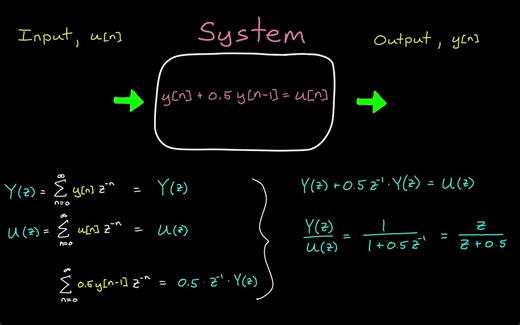 Input, u[n]
System
Output, y[n]
y[n] + 0.5 y[n-1] = u[n]
Y(z) = ∑_{n=0}^{∞} y[n] z^{-n} = Y(z)
U(z) = ∑_{n=0}^{∞} u[n] z^{-n} = U(z)
∑_{n=0}^{∞} 0.5 y[n-1] z^{-n} = 0.5 · z^{-1} · Y(z)
Y(z) + 0.5 z^{-1} · Y(z) = U(z)
Y(z)/U(z) = 1/(1 + 0.5 z^{-1}) = z/(z + 0.5)